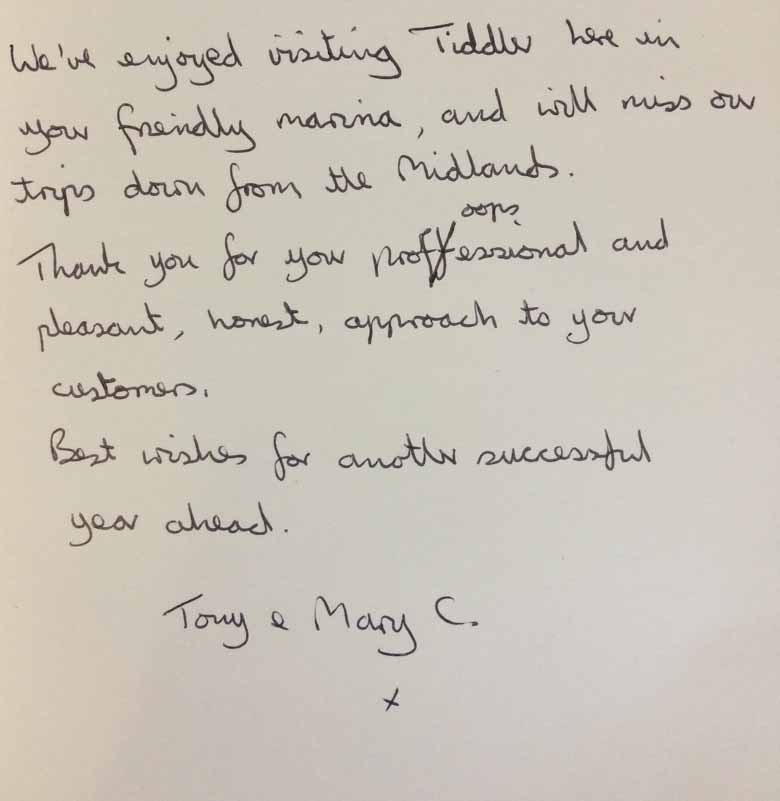 We've enjoyed visiting Tiddler here in
your friendly marina, and will miss our
trips down from the Midlands.
oops
Thank you for your proffessional and
pleasant, honest, approach to your
customers.
Best wishes for another successful
year ahead.
Tony & Mary C.
x